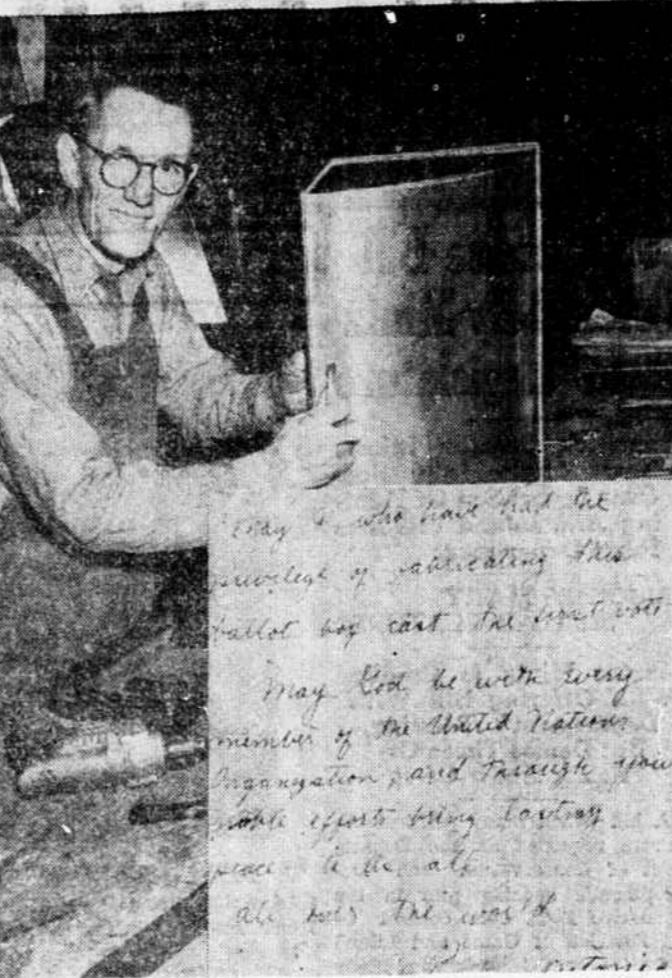 May I, who have had the
privilege of fabricating this
ballot box cast the first vote
May God be with every
member of the United Nations
Organization, and through your
noble efforts bring lasting
peace to us all
all over the world